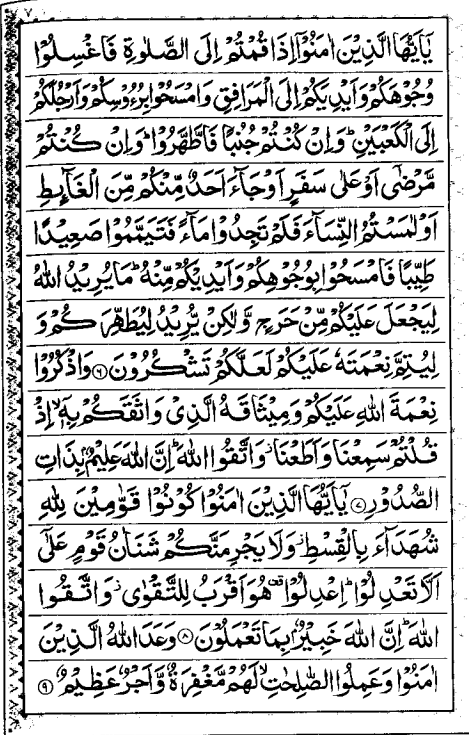 ۷
يٰۤاَيُّهَا الَّذِيْنَ اٰمَنُوْۤا اِذَا قُمْتُمْ اِلَى الصَّلٰوةِ فَاغْسِلُوْا
وُجُوْهَكُمْ وَاَيْدِيَكُمْ اِلَى الْمَرَافِقِ وَامْسَحُوْا بِرُءُوْسِكُمْ وَاَرْجُلَكُمْ
اِلَى الْكَعْبَيْنِ ؕ وَاِنْ كُنْتُمْ جُنُبًا فَاطَّهَّرُوْا ؕ وَاِنْ كُنْتُمْ
مَّرْضٰۤى اَوْ عَلٰى سَفَرٍ اَوْ جَآءَ اَحَدٌ مِّنْكُمْ مِّنَ الْغَآئِطِ
اَوْ لٰمَسْتُمُ النِّسَآءَ فَلَمْ تَجِدُوْا مَآءً فَتَيَمَّمُوْا صَعِيْدًا
طَيِّبًا فَامْسَحُوْا بِوُجُوْهِكُمْ وَاَيْدِيْكُمْ مِّنْهُ ؕ مَا يُرِيْدُ اللّٰهُ
لِيَجْعَلَ عَلَيْكُمْ مِّنْ حَرَجٍ وَّلٰكِنْ يُّرِيْدُ لِيُطَهِّرَكُمْ وَ
لِيُتِمَّ نِعْمَتَهٗ عَلَيْكُمْ لَعَلَّكُمْ تَشْكُرُوْنَ ۶ وَاذْكُرُوْا
نِعْمَةَ اللّٰهِ عَلَيْكُمْ وَمِيْثَاقَهُ الَّذِيْ وَاثَقَكُمْ بِهٖۤ ۙ اِذْ
قُلْتُمْ سَمِعْنَا وَاَطَعْنَا ؗ وَاتَّقُوا اللّٰهَ ؕ اِنَّ اللّٰهَ عَلِيْمٌۢ بِذَاتِ
الصُّدُوْرِ ۷ يٰۤاَيُّهَا الَّذِيْنَ اٰمَنُوْا كُوْنُوْا قَوّٰمِيْنَ لِلّٰهِ
شُهَدَآءَ بِالْقِسْطِ ؗ وَلَا يَجْرِمَنَّكُمْ شَنَاٰنُ قَوْمٍ عَلٰۤى
اَلَّا تَعْدِلُوْا ؕ اِعْدِلُوْا ۫ هُوَ اَقْرَبُ لِلتَّقْوٰى ؗ وَاتَّقُوا
اللّٰهَ ؕ اِنَّ اللّٰهَ خَبِيْرٌۢ بِمَا تَعْمَلُوْنَ ۸ وَعَدَ اللّٰهُ الَّذِيْنَ
اٰمَنُوْا وَعَمِلُوا الصّٰلِحٰتِ ۙ لَهُمْ مَّغْفِرَةٌ وَّاَجْرٌ عَظِيْمٌ ۹